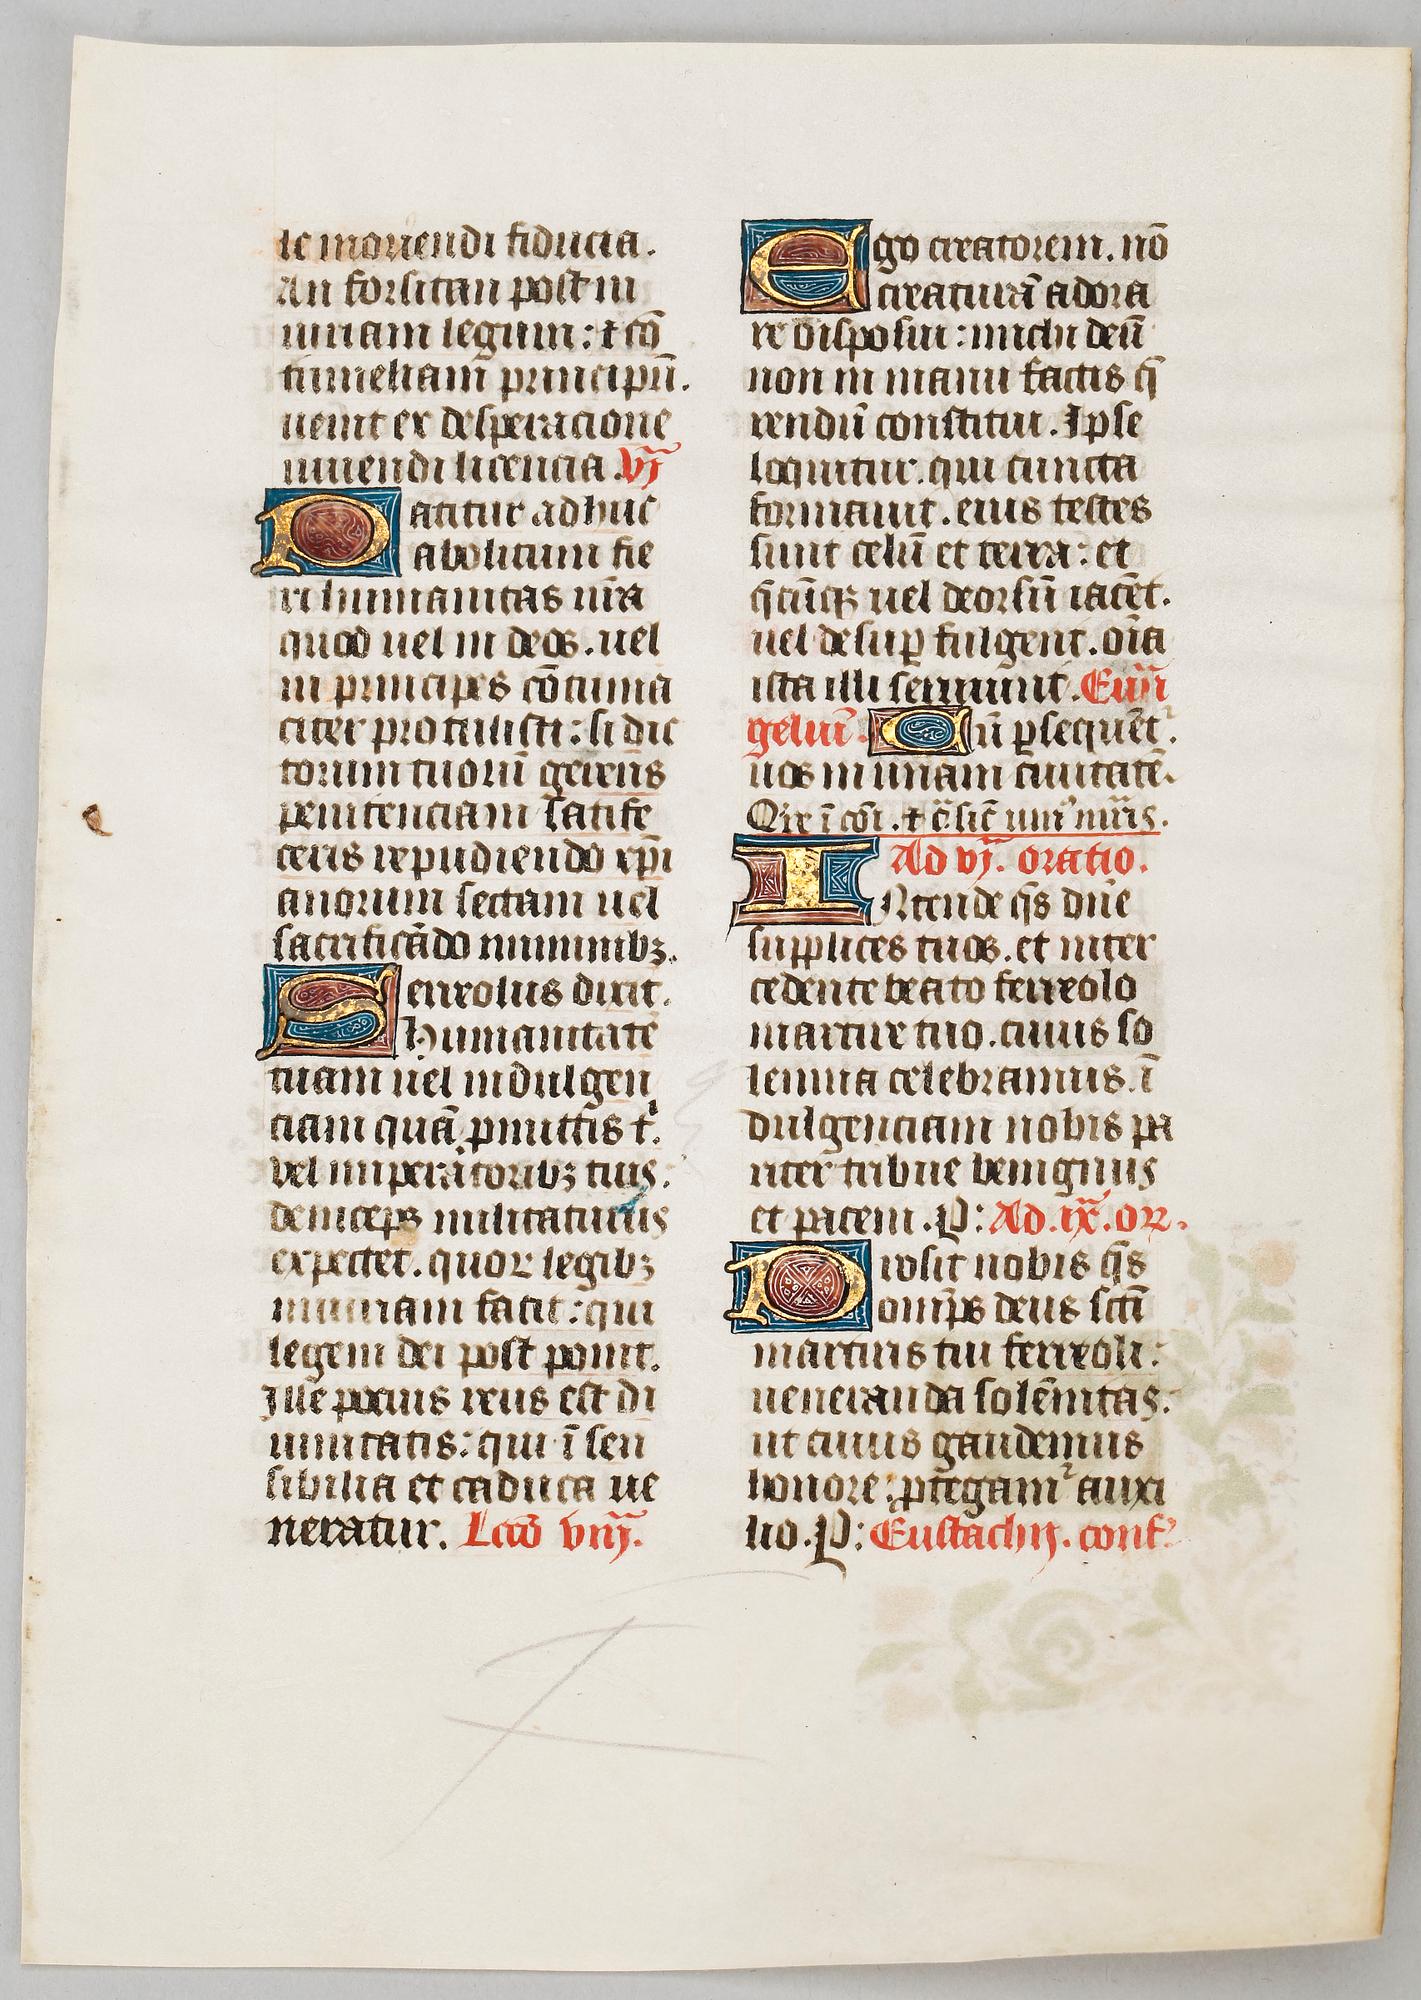 le moriendi fiducia.
An forsitan post in
iuriam legum: ⁊ cō
tumeliam principū.
uenit ex desperacione
uiuendi licencia. vj
Patitur adhuc
abolitum fie
ri humanitas nr̄a
quod uel in deos. uel
in principes cōtuma
citer protulisti: si dic
torum tuorū gerens
penitenciam satisfe
ceris repudiendo xp̄i
anorum sectam uel
sacrificādo numinibꝫ.
Ferreolus dixit.
Humanitatē
tuam uel indulgen
ciam quā ꝑmittis t'.
vel imperatoribꝫ tuis:
deinceps militaturus
expectet. quor legibꝫ
iniuriam facit: qui
legem dei post ponit.
Ille pocius reus est di
uinitatis: qui ī sen
sibilia et caduca ue
neratur. Lcō viij.
Ego creatorem. nō
creaturā adora
re disposui: michi deū
non in manu factis q̄
rendū constitui. Ipse
loquitur. qui cuncta
formauit. eius testes
sunt celū et terra: et
q̄cūqꝫ uel deorsū iacēt.
uel desuꝑ fulgent. oīa
ista illi seruiunt. Euū
geliū. Cū ꝑsequēt'.
uos in unam ciuitatē.
Qr̄e ī cōi. ⁊ c̄ sic̄ uniꝰ mr̄is.
Ad vj. oratio.
INtende q̄s dn̄e
supplices tuos. et inter
cedente beato ferreolo
martire tuo. cuius so
lennia celebramus. ī
dulgenciam nobis pa
riter tribue benignus
et pacem. P: Ad. ix. or.
Prosit nobis q̄s
omīps deus sc̄ti
martiris tui ferreoli:
ueneranda solēnitas:
ut cuius gaudemus
honore: ꝓtegam' auxi
lio. P: Eustachij. conf.